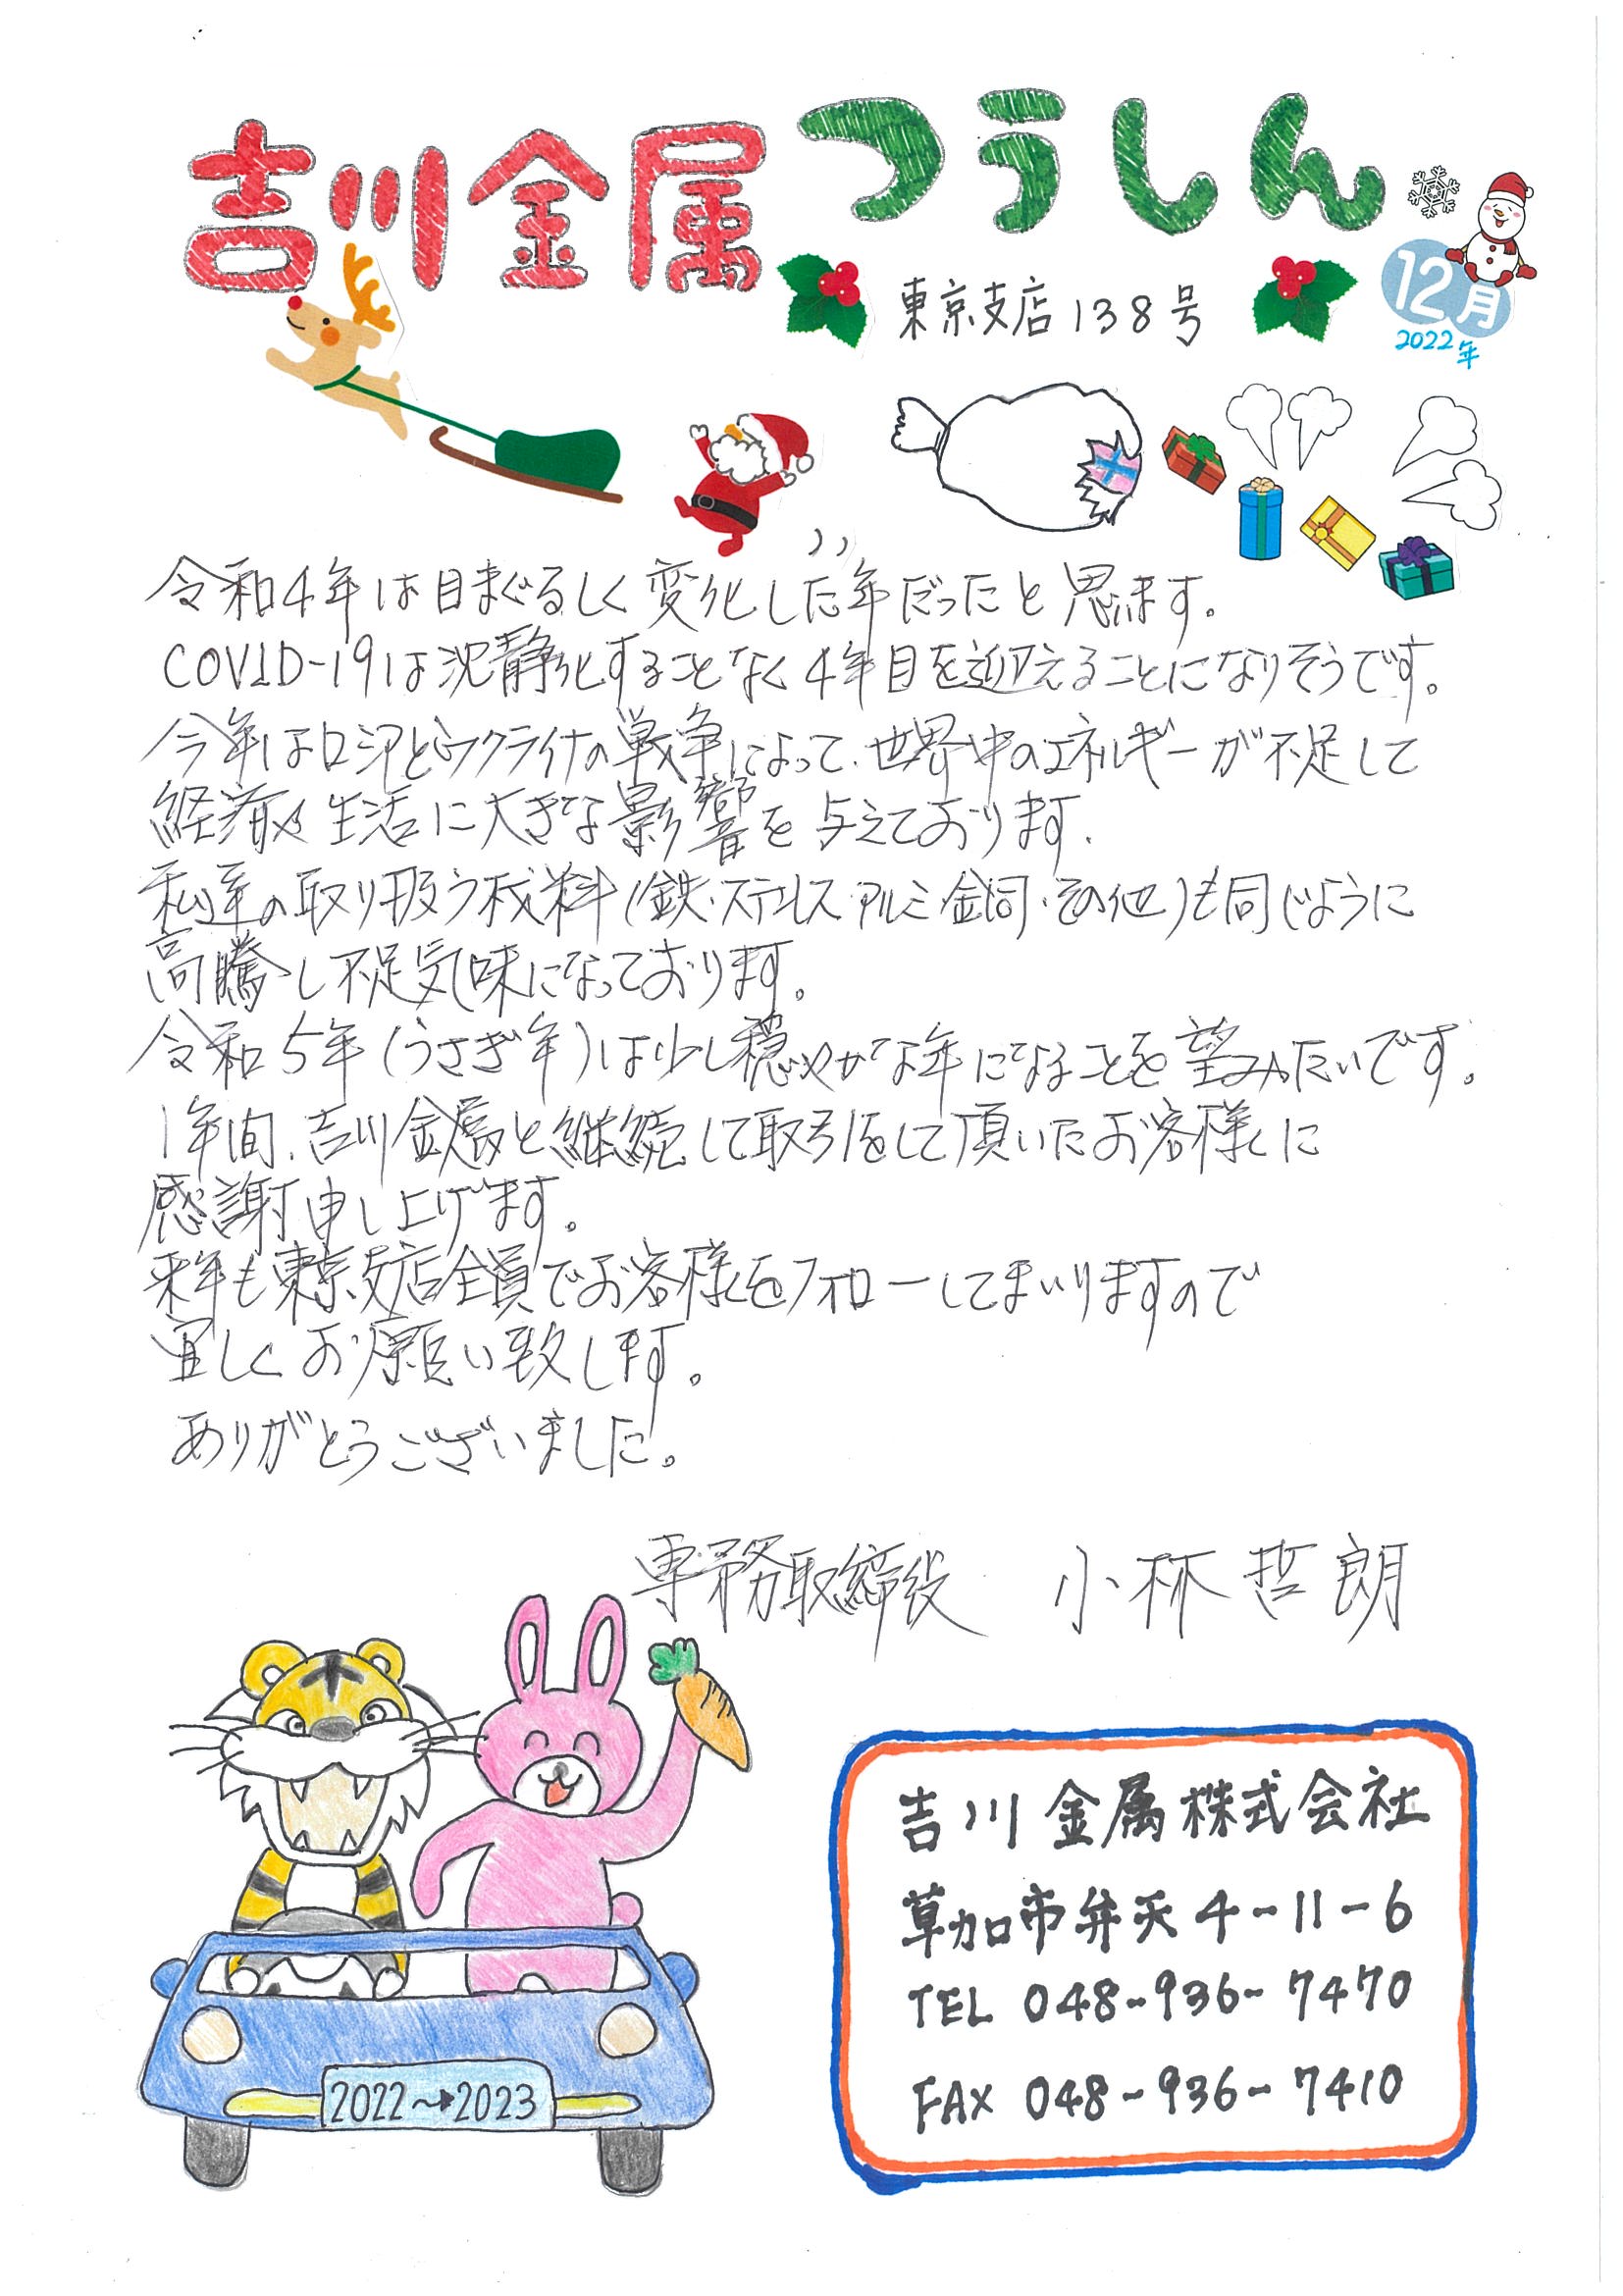 吉川金属つうしん
東京支店138号
12月
2022年
令和4年は目まぐるしく変化した年だったと思います。
COVID-19は沈静化することなく4年目を迎えることになりそうです。
今年はロシアとウクライナの戦争によって、世界中のエネルギーが不足して
経済や生活に大きな影響を与えております。
私達の取り扱う材料(鉄・ステンレス・アルミ・金同・その他)も同じように
高騰し不足気味になっております。
令和5年(うさぎ年)は少し穏やかな年になることを望みたいです。
1年間、吉川金属と継続して取引をして頂いたお客様に
感謝申し上げます。
来年も東京支店全員でお客様をフォローしてまいりますので
宜しくお願い致します。
ありがとうございました。
専務取締役 小林哲朗
2022〜→2023
吉川金属株式会社
草加市弁天4-11-6
TEL 048-936-7470
FAX 048-936-7410